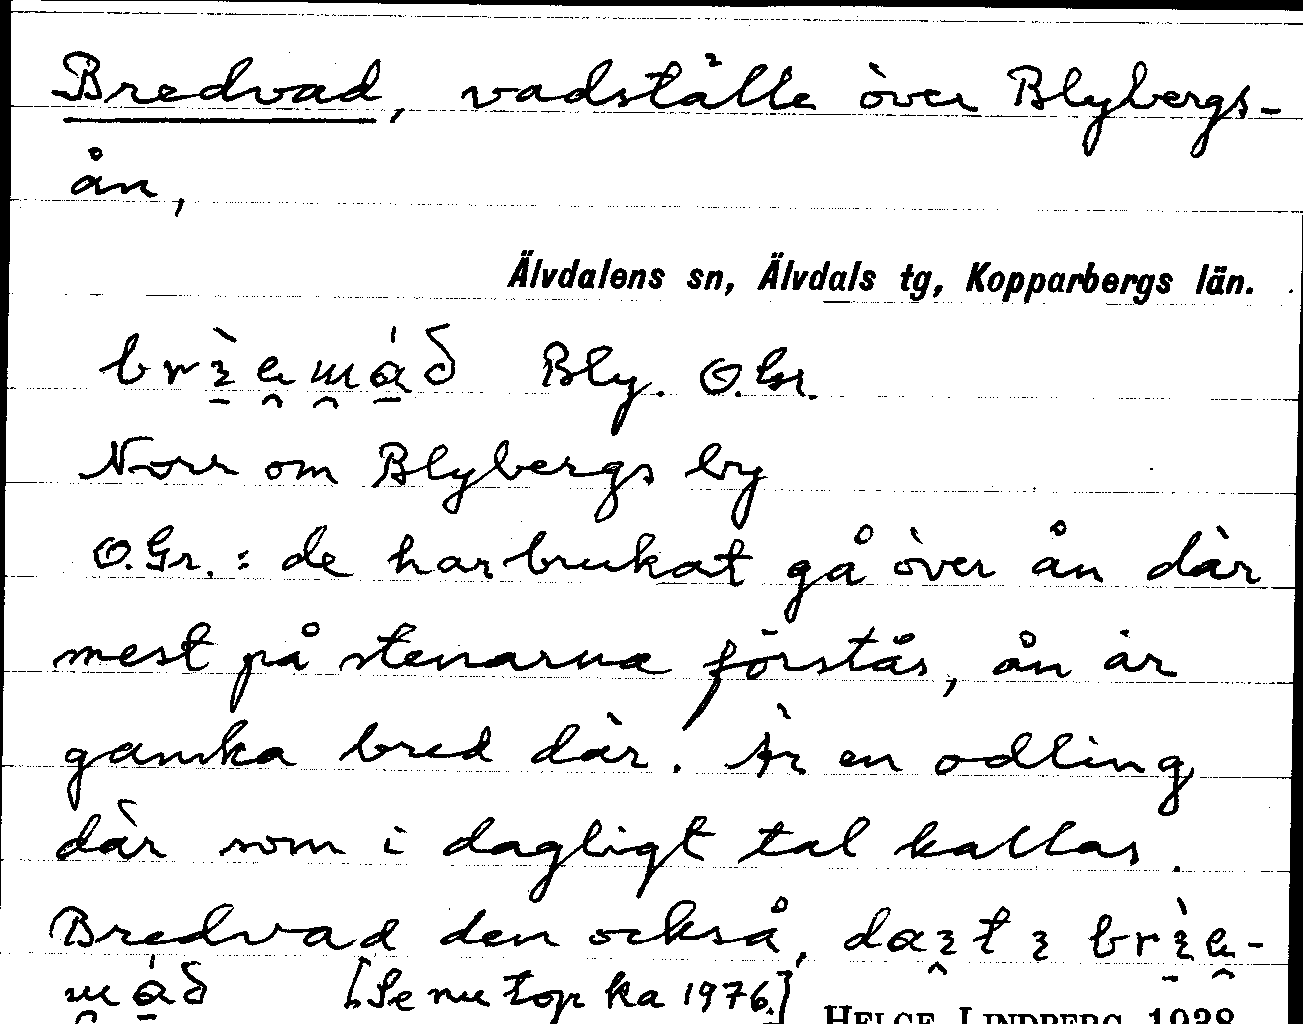 Bredvad, vadställe över Blybergs-
ån,
Älvdalens sn, Älvdals tg, Kopparbergs län.
Bly. O.Gr.
Norr om Blybergs by
O.Gr.: de har brukat gå över ån där
mest på stenarna förstås, ån är
ganska bred där. Är en odling
där som i dagligt tal kallas
Bredvad den också,
[Se nu top ka 1976.]
HELGE LINDBERG 1938